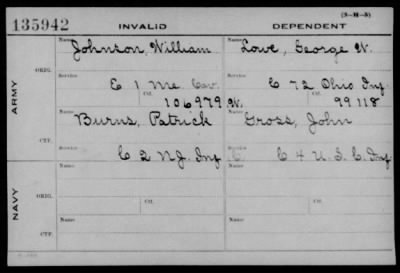 (3-H-5)
135942 INVALID DEPENDENT
Name Johnson, William Name Lowe, George W.
ORIG.
Service E 1 Me Cav. Service C 72 Ohio Inf.
Ctf. 106979 Ctf. W. 99118
ARMY
Name Burns, Patrick Name Gross, John
CTF.
Service C 2 N.J. Inf Service C 4 U.S.C. Inf.
Name Name
ORIG.
Service Service
Ctf. Ctf.
NAVY
Name Name
CTF.
Service Service